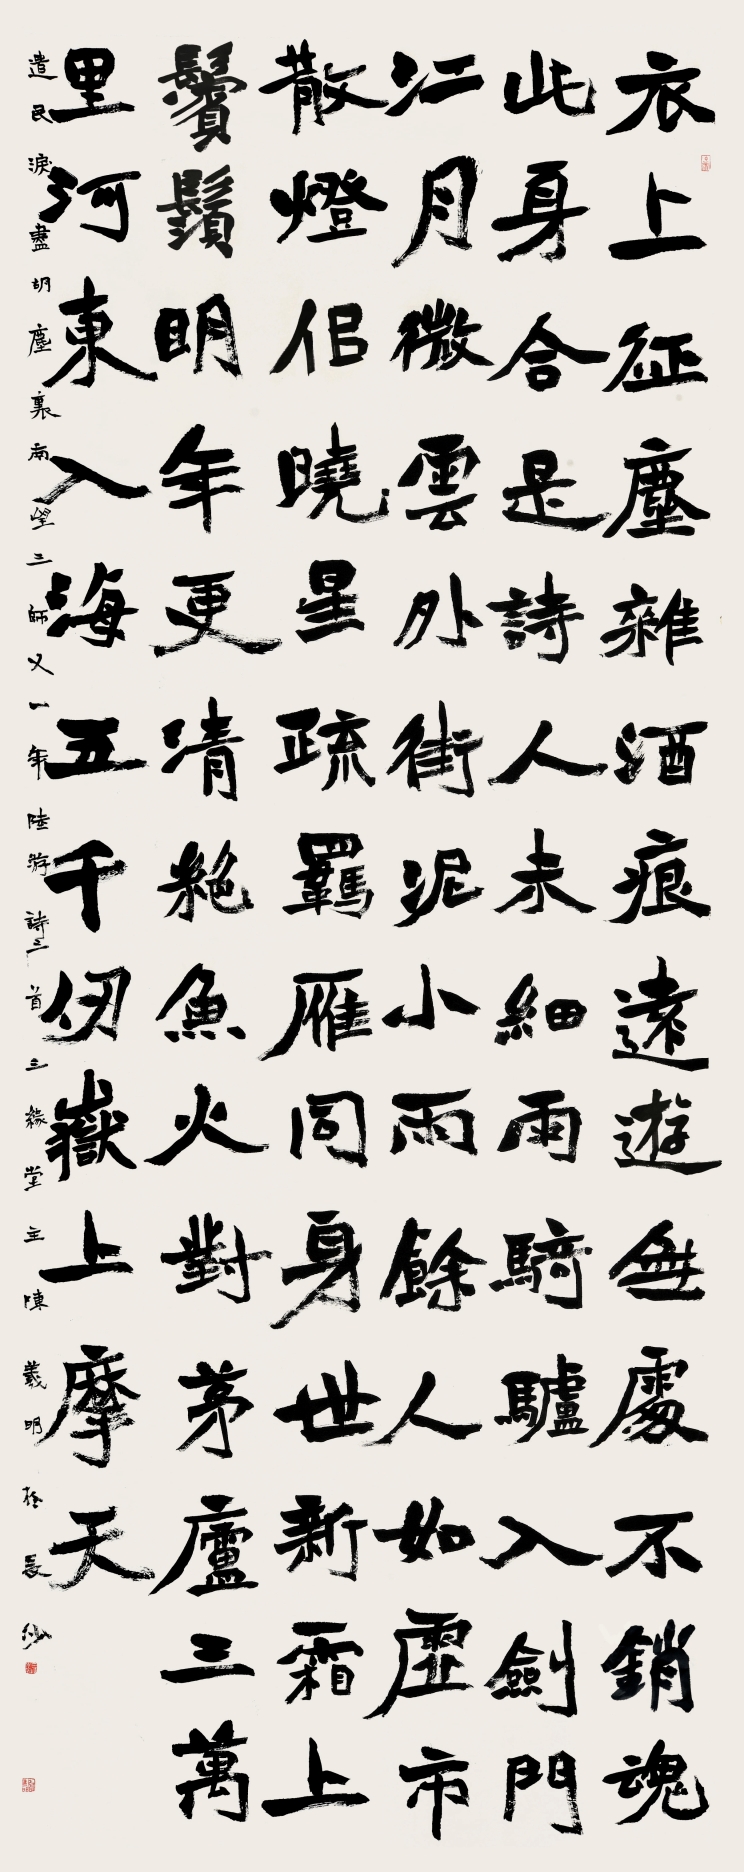 衣上征塵雜酒痕遠遊無處不銷魂
此身合是詩人未細雨騎驢入劍門
江月微雲外街泥小雨餘人如虛市
散燈佀曉星疏羈雁同身世新霜上
鬢鬚明年更清絶魚火對茅廬三萬
里河東入海五千仞嶽上摩天
遺民淚盡胡塵裏南望王師又一年陸游詩三首三緣堂主陳羲明於長沙